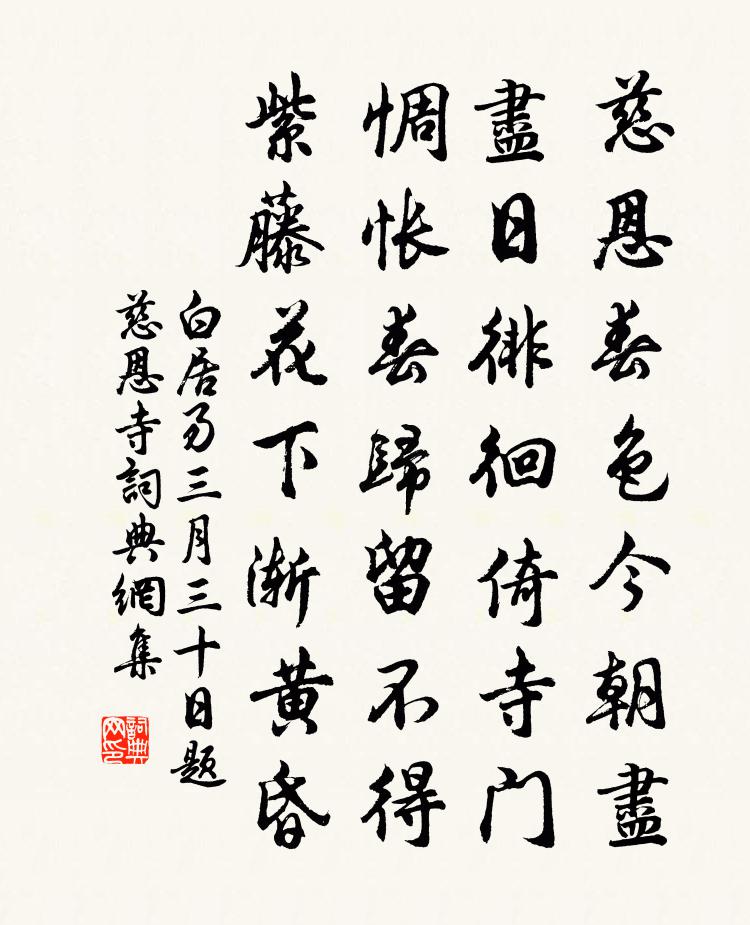 慈恩春色今朝盡
盡日徘徊倚寺門
惆悵春歸留不得
紫藤花下漸黃昏
白居易三月三十日題
慈恩寺詞典網集
詞典網印